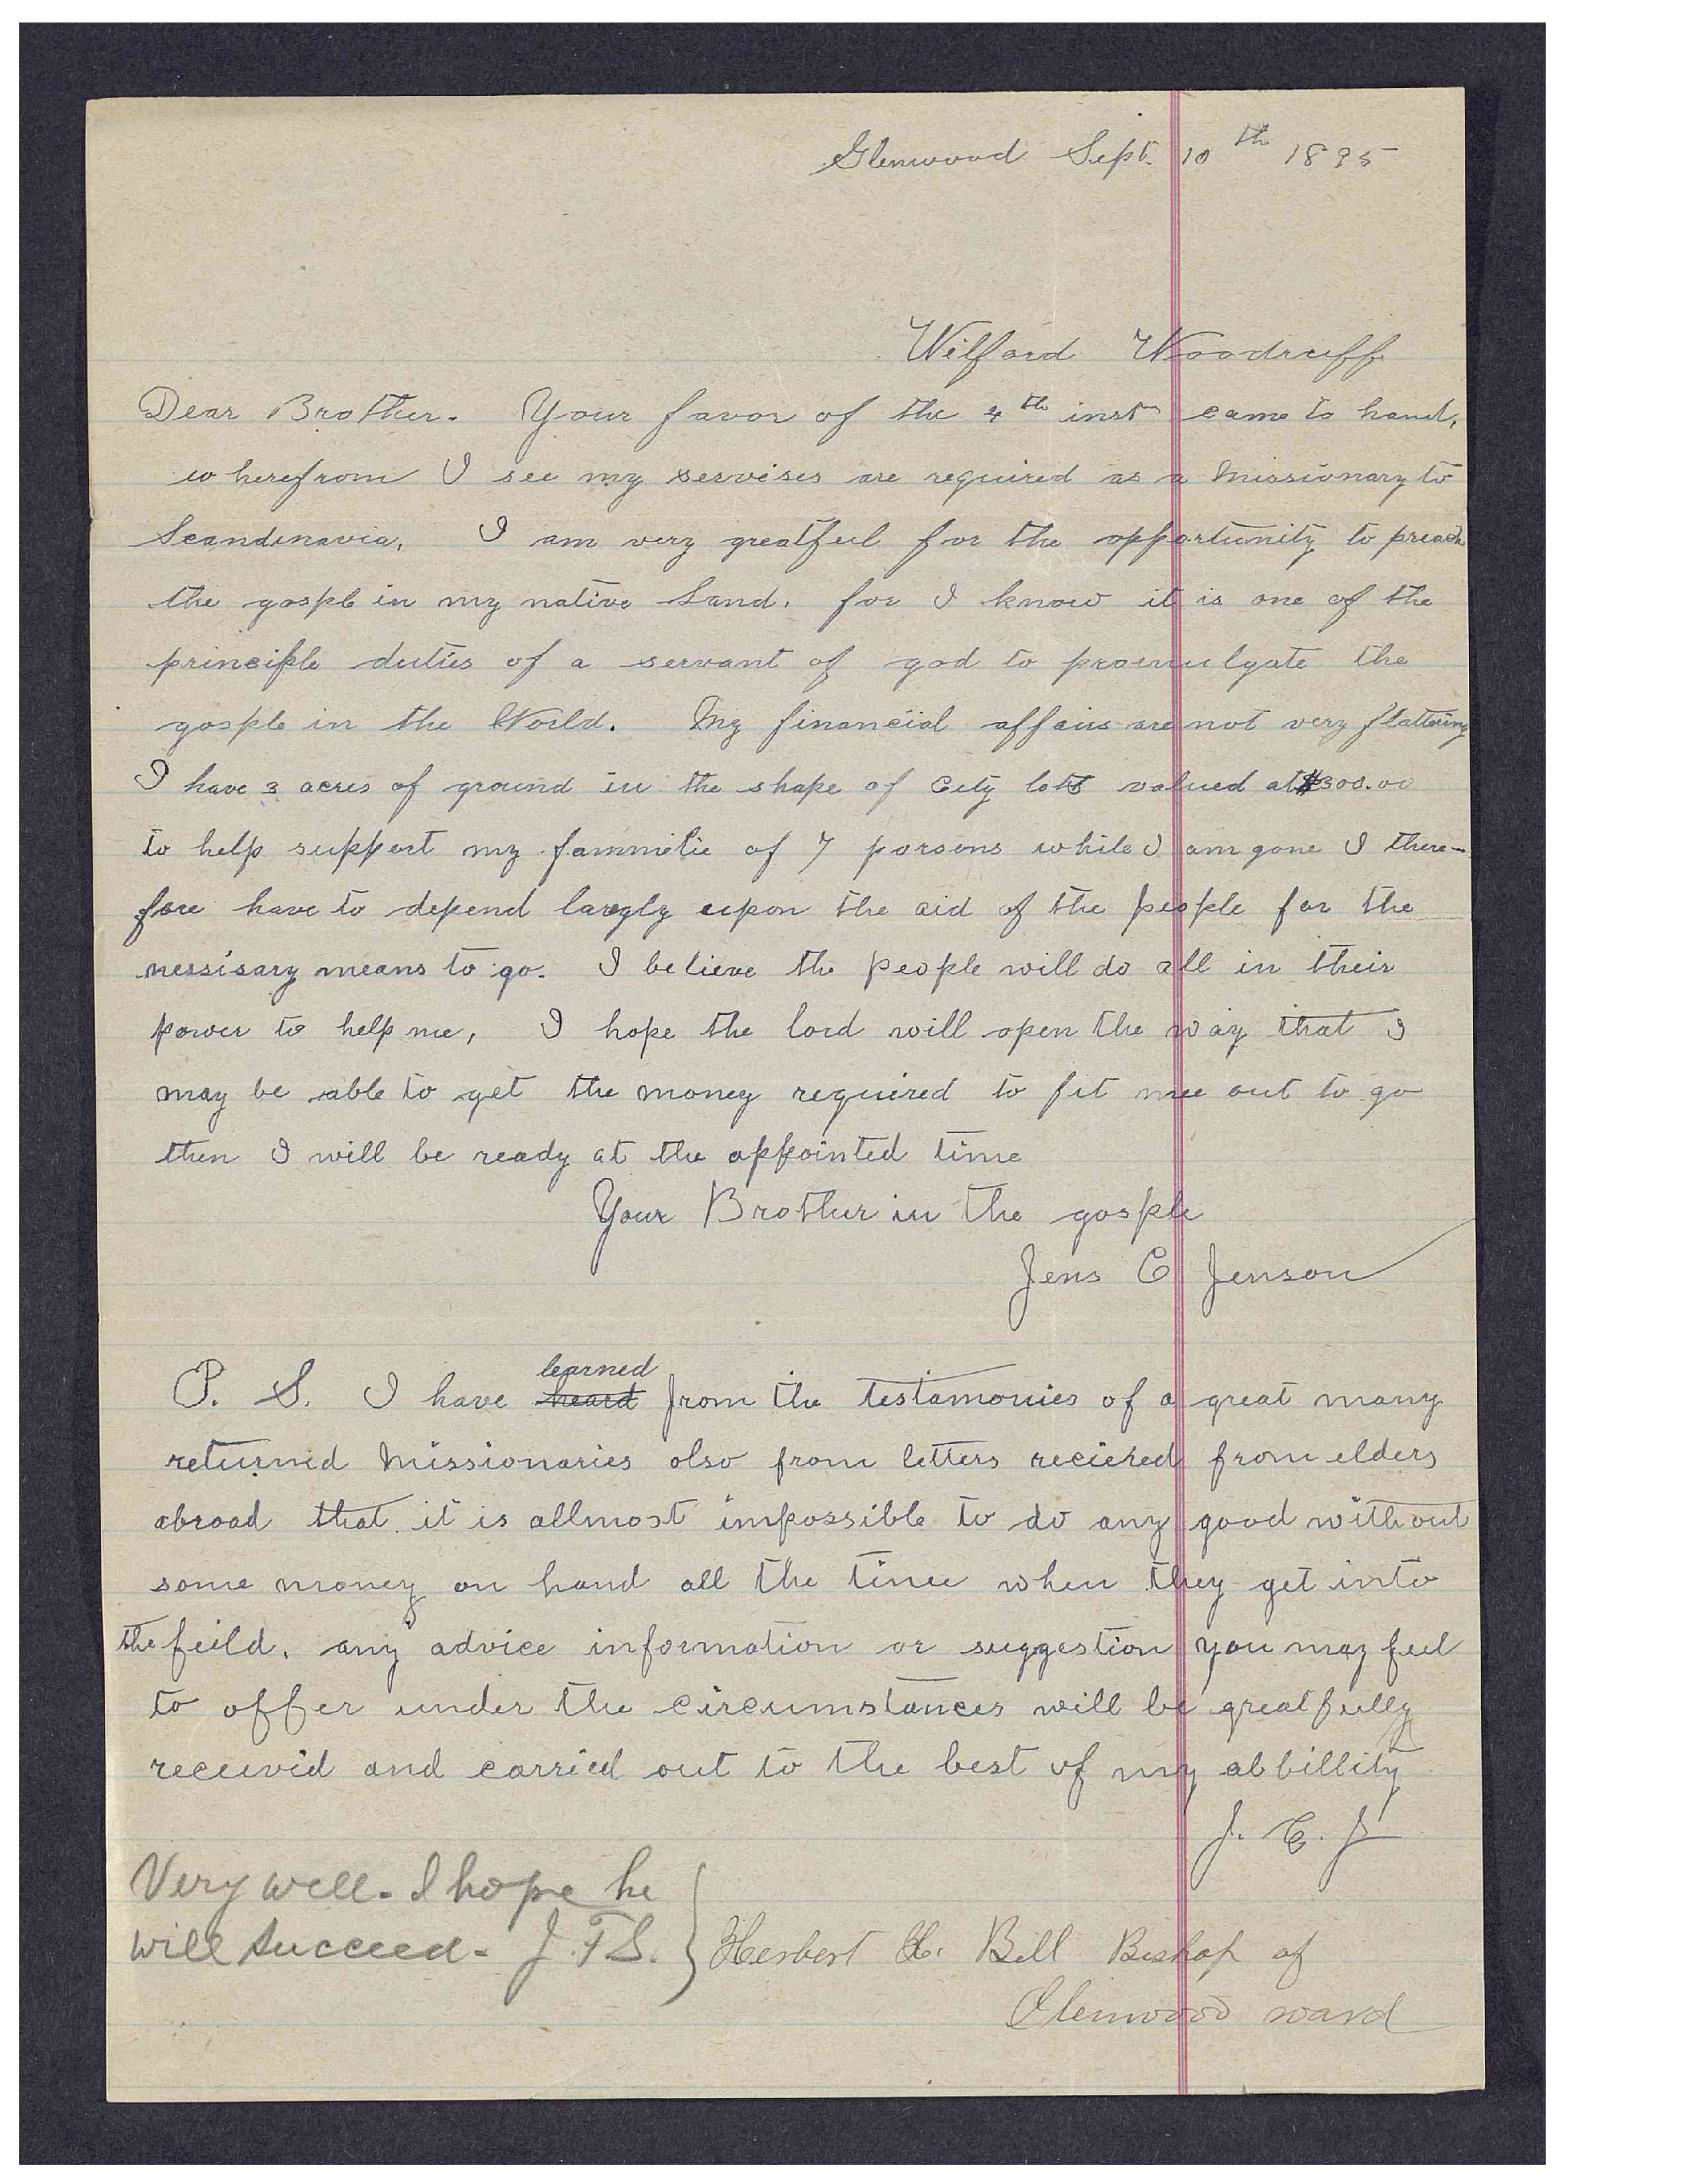 Glenwood Sept. 10th 1895
Wilford Woodruff
Dear Brother. Your favor of the 4th inst came to hand,
wherefrom I see my servises are required as a missionary to
Scandinavia, I am very greatful for the opportunity to preach
the gosple in my native Land, for I know it is one of the
principle duties of a servant of god to promulgate the
gosple in the World. My financial affairs are not very flattering
I have 3 acres of ground in the shape of City lots valued at $300.00
to help support my fammelie of 7 porsons while I am gone I there-
fore have to depend largly upon the aid of the people for the
nessisary means to go. I believe the people will do all in their
power to help me, I hope the lord will open the way that I
may be able to get the money required to fit me out to go
then I will be ready at the appointed time
Your Brother in the gosple
Jens C Jenson
learned
P. S. I have heard from the testamonies of a great many
returned missionaries also from letters recieved from elders
abroad that it is allmost impossible to do any good without
some money on hand all the time when they get into
the feild, any advice information or suggestion you may feel
to offer under the circumstances will be greatfully
received and carried out to the best of my abbillity
J. C. J
Very well. I hope he
will succeed. J.F.S.
Herbert H. Bell Bishop of
Glenwood ward